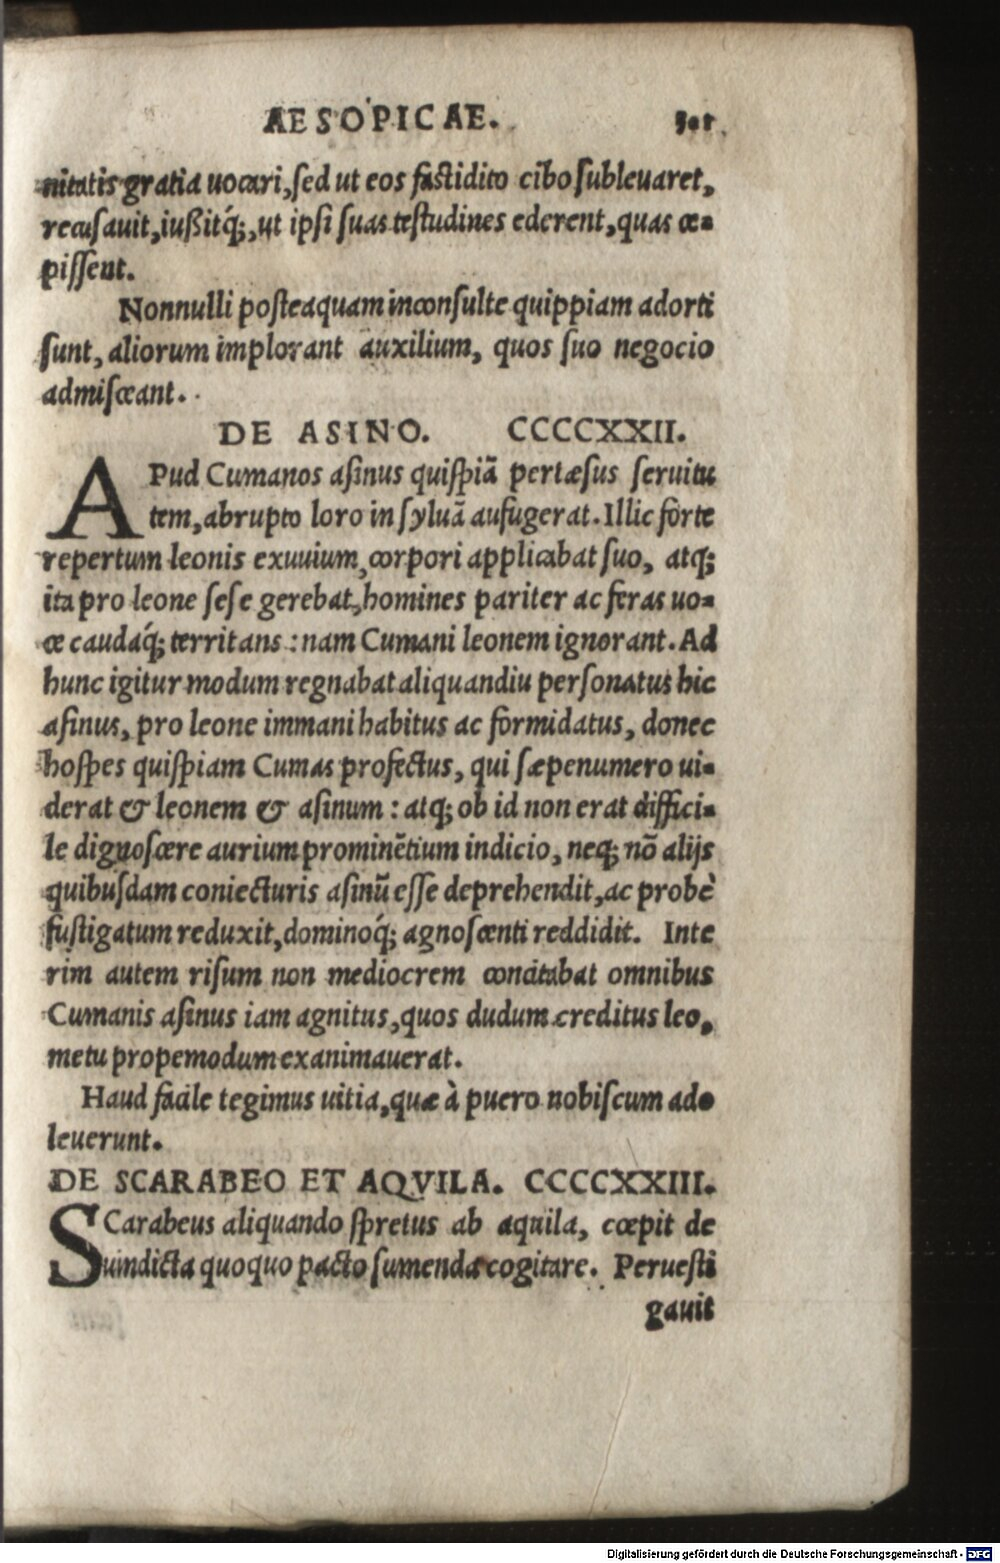 AESOPICAE. 301
nitatis gratia uocari, sed ut eos fastidito cibo subleuaret,
recusauit, iußitq́;, ut ipsi suas testudines ederent, quas cœ-
pissent.
Nonnulli posteaquam inconsulte quippiam adorti
sunt, aliorum implorant auxilium, quos suo negocio
admisceant.
DE ASINO. CCCCXXII.
APud Cumanos asinus quispiã pertæsus seruitu
tem, abrupto loro in syluã aufugerat. Illic forte
repertum leonis exuuium, corpori applicabat suo, atq;
ita pro leone sese gerebat, homines pariter ac feras uo-
ce caudaq́; territans : nam Cumani leonem ignorant. Ad
hunc igitur modum regnabat aliquandiu personatus hic
asinus, pro leone immani habitus ac formidatus, donec
hospes quispiam Cumas profectus, qui sæpenumero ui-
derat & leonem & asinum : atq; ob id non erat diffici-
le dignoscere aurium prominẽtium indicio, neq; nõ alijs
quibusdam coniecturis asinũ esse deprehendit, ac probè
fustigatum reduxit, dominoq́; agnoscenti reddidit. Inte
rim autem risum non mediocrem concitabat omnibus
Cumanis asinus iam agnitus, quos dudum creditus leo,
metu propemodum exanimauerat.
Haud facile tegimus uitia, quæ à puero nobiscum ado
leuerunt.
DE SCARABEO ET AQVILA. CCCCXXIII.
SCarabeus aliquando spretus ab aquila, cœpit de
uindicta quoquo pacto sumenda cogitare. Peruesti
gauit
Digitalisierung gefördert durch die Deutsche Forschungsgemeinschaft - DFG